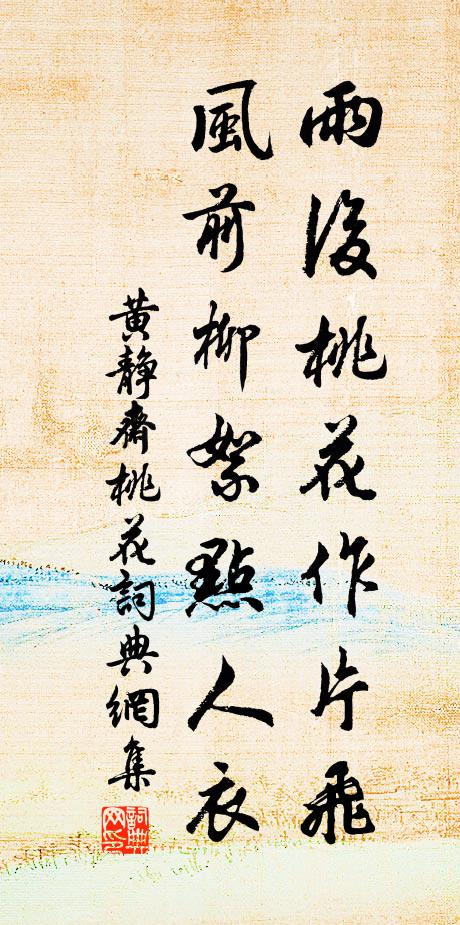 雨後桃花作片飛
風前柳絮點人衣
黄静齋桃花詞典網集
詞典網印